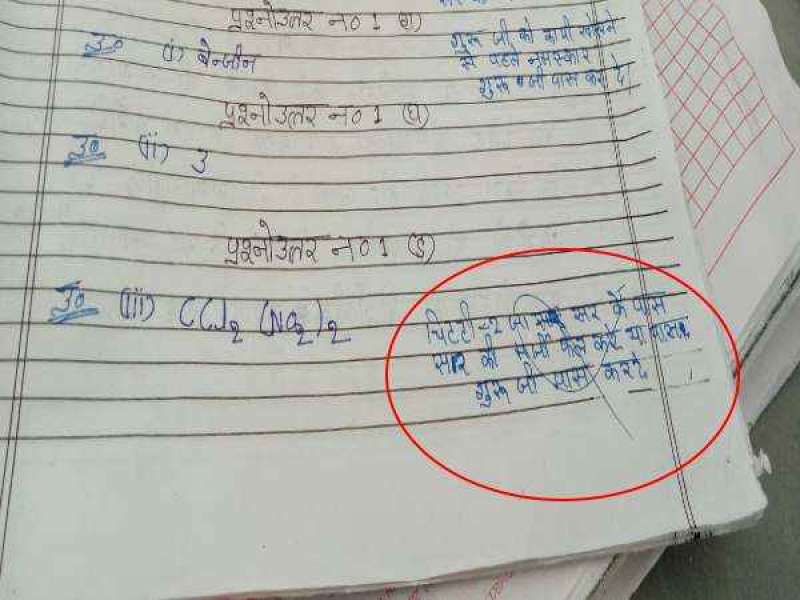 प्रश्नोउत्तर न० 1 (ग)
उ० (i) बेन्जीन
गुरू जी को कापी खोलने
से पहले नमस्कार
गुरू जी पास कर दे।
प्रश्नोउत्तर न० 1 (घ)
उ० (ii) 3
प्रश्नोउत्तर न० 1 (ङ)
उ० (iii) CCl₂ (NO₂)₂
चिटटी-2 जा सर के पास
सर की मर्जी फेल करे या पास
गुरू जी पास करदे